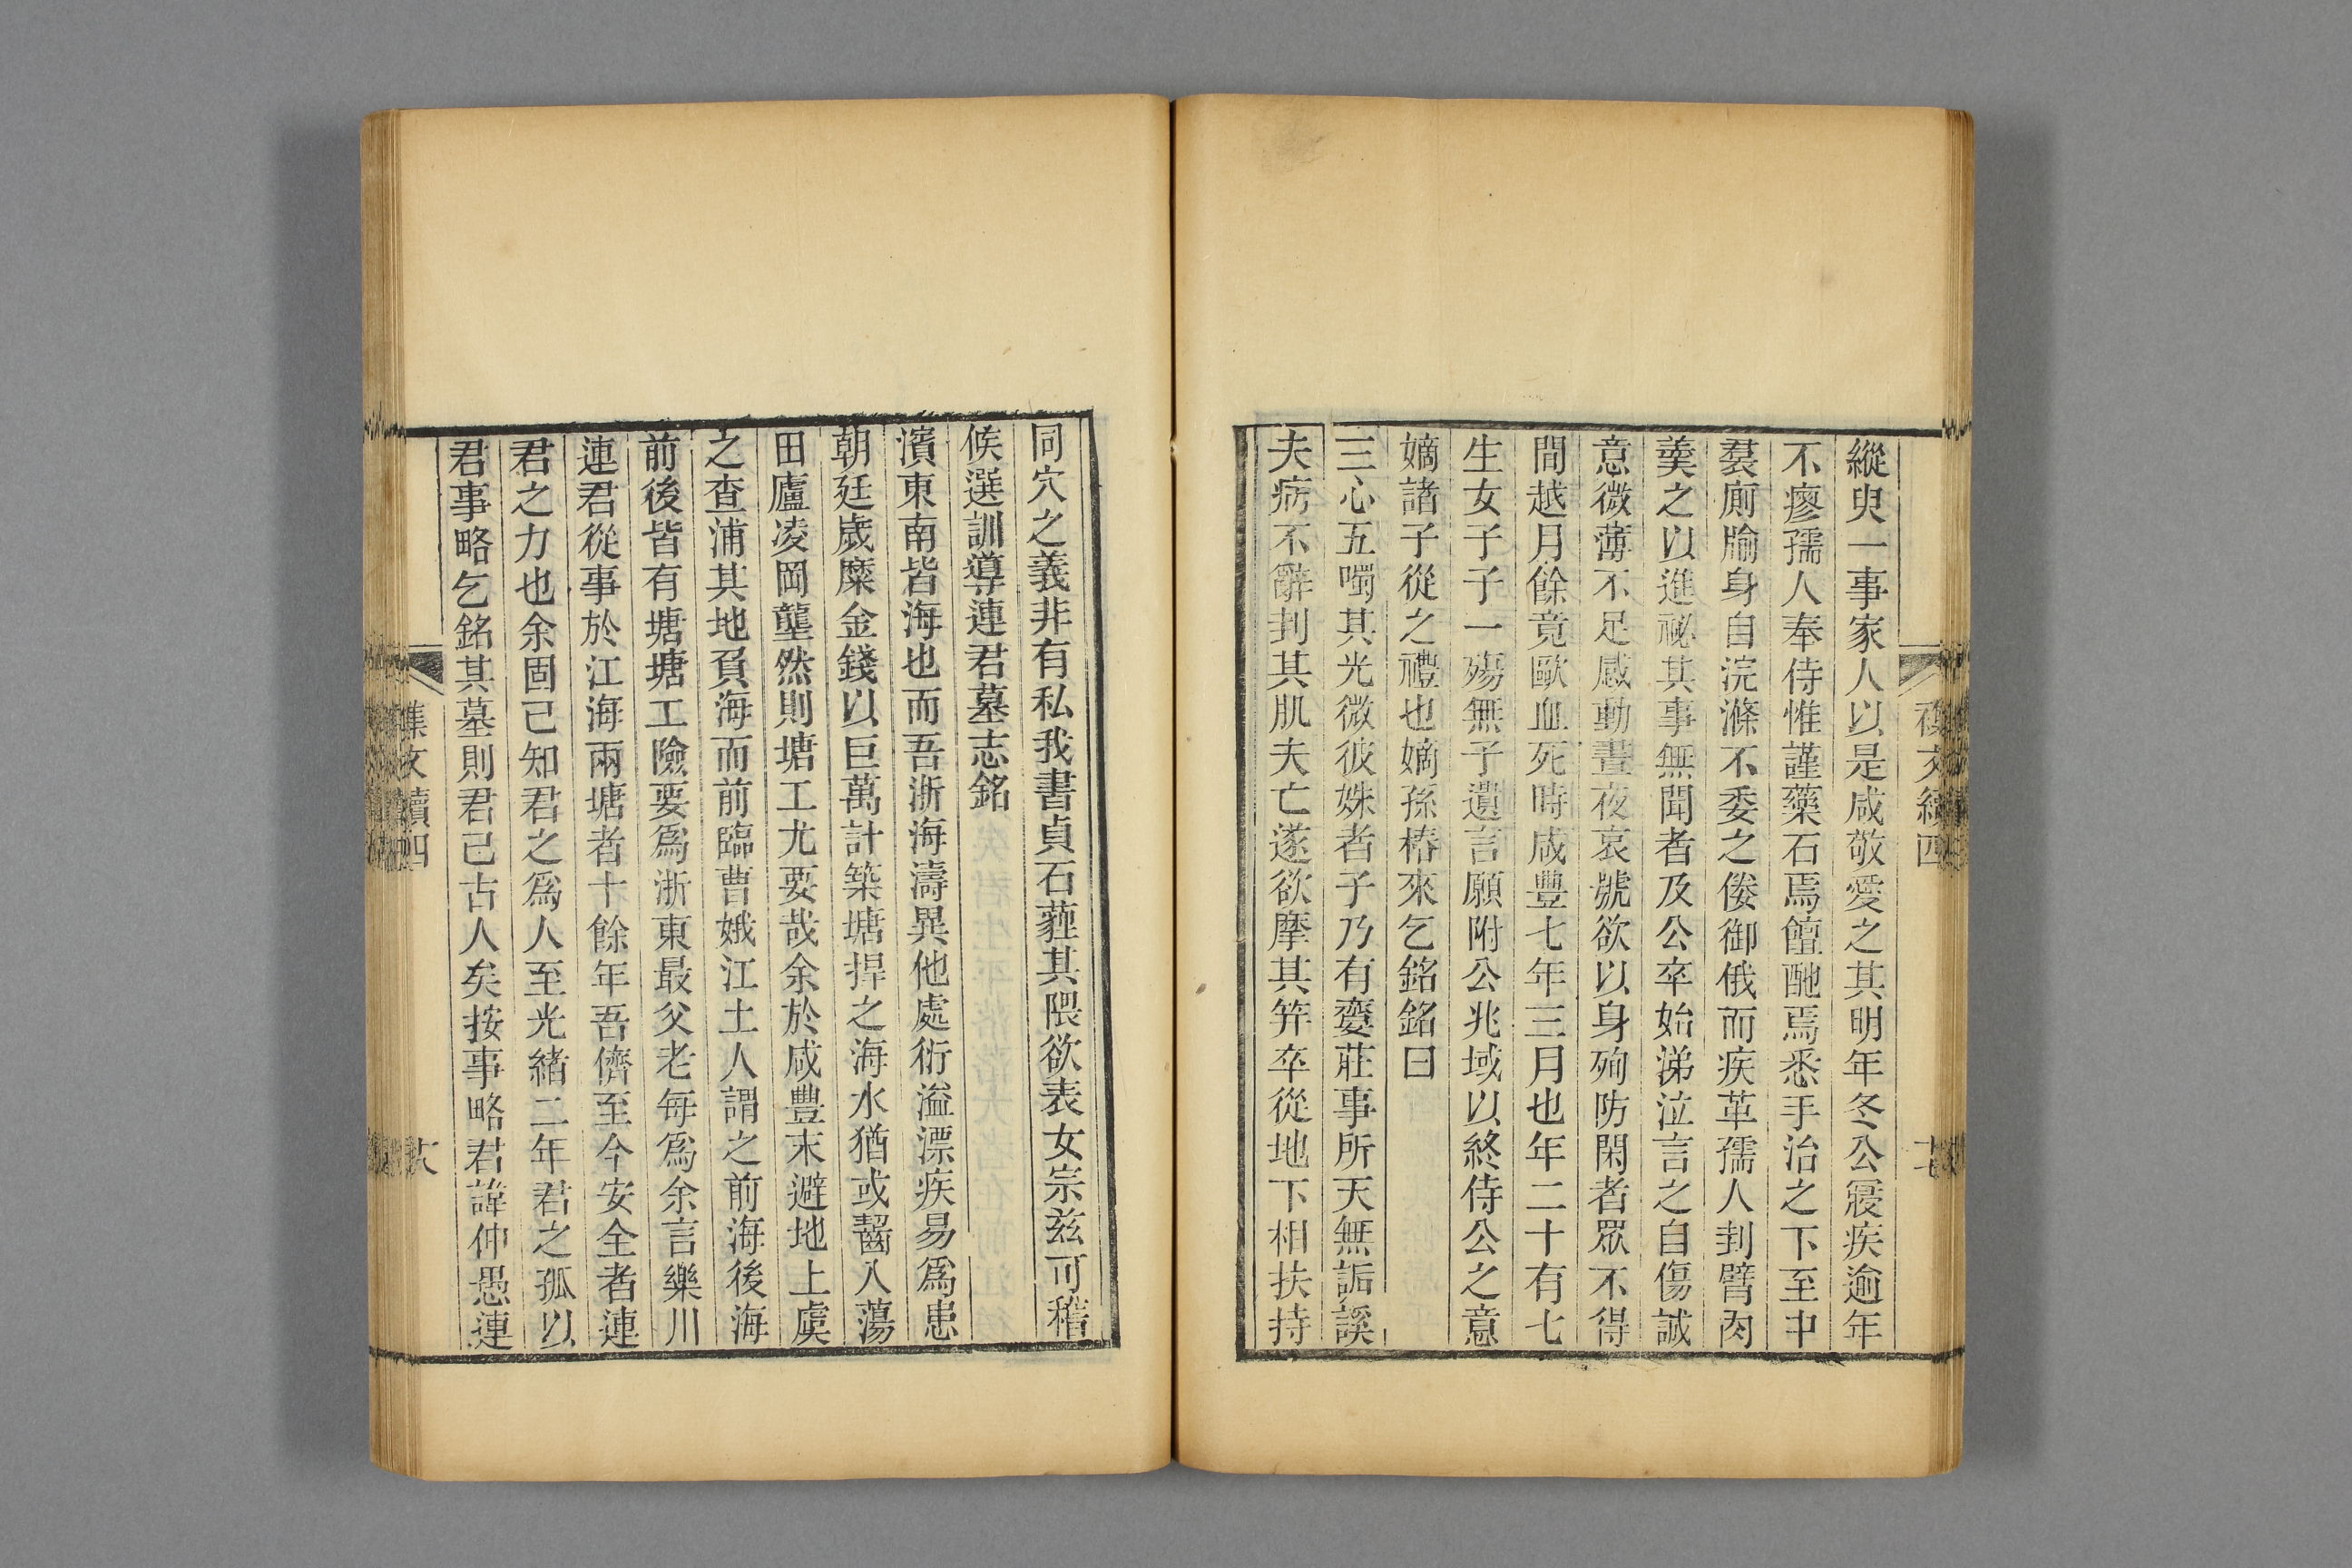 縱臾一事家人以是咸敬愛之其明年冬公寢疾逾年
不瘳孺人奉侍惟謹藥石焉饘酏焉悉手治之下至中
裠廁牏身自浣滌不委之倭御俄而疾革孺人刲臂肉
羹之以進祕其事無聞者及公卒始涕泣言之自傷誠
意微薄不足感動晝夜哀號欲以身殉防閑者眾不得
間越月餘竟歐血死時咸豐七年三月也年二十有七
生女子子一殤無子遺言願附公兆域以終侍公之意
嫡諸子從之禮也嫡孫椿來乞銘銘曰
三心五噣其光微彼姝者子乃有夔莊事所天無詬諼
夫病不辭刲其肌夫亡遂欲摩其笄卒從地下相扶持
襍文續四
十七
同穴之義非有私我書貞石薶其隈欲表女宗茲可稽
候選訓導連君墓志銘
濱東南皆海也而吾浙海濤異他處衍溢漂疾易為患
朝廷歲糜金錢以巨萬計築塘捍之海水猶或齧入蕩
田廬凌岡壟然則塘工尤要哉余於咸豐末避地上虞
之查浦其地負海而前臨曹娥江土人謂之前海後海
前後皆有塘塘工險要為浙東最父老每為余言樂川
連君從事於江海兩塘者十餘年吾儕至今安全者連
君之力也余固已知君之為人至光緒二年君之孤以
君事略乞銘其墓則君已古人矣按事略君諱仲愚連
襍文續四